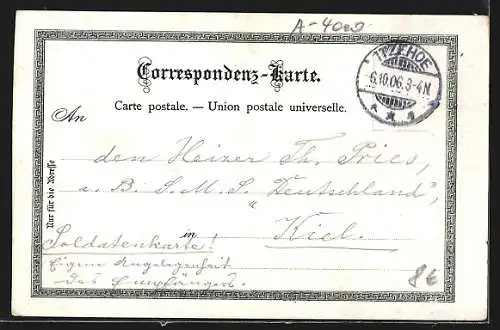 A-4029
ITZEHOE
6.10.06.3-4N.
Correspondenz-Karte.
Carte postale. — Union postale universelle.
An
den Heizer Th. Pries,
a. B. S. M. S. "Deutschland",
in Kiel.
Nur für die Adresse
Soldatenkarte!
Eigene Angelegenheit
des Empfängers.
8€